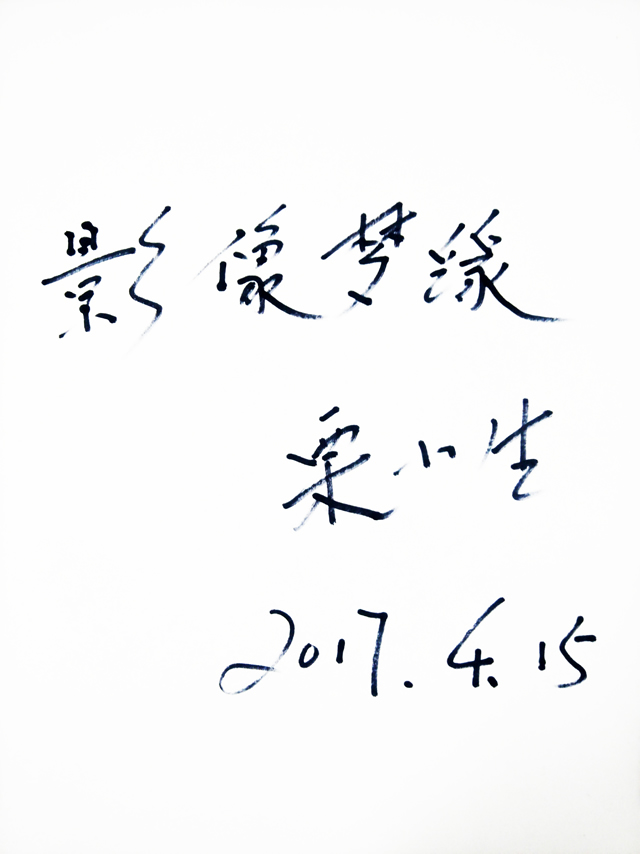 影像梦缘
栗小生
2017.4.15